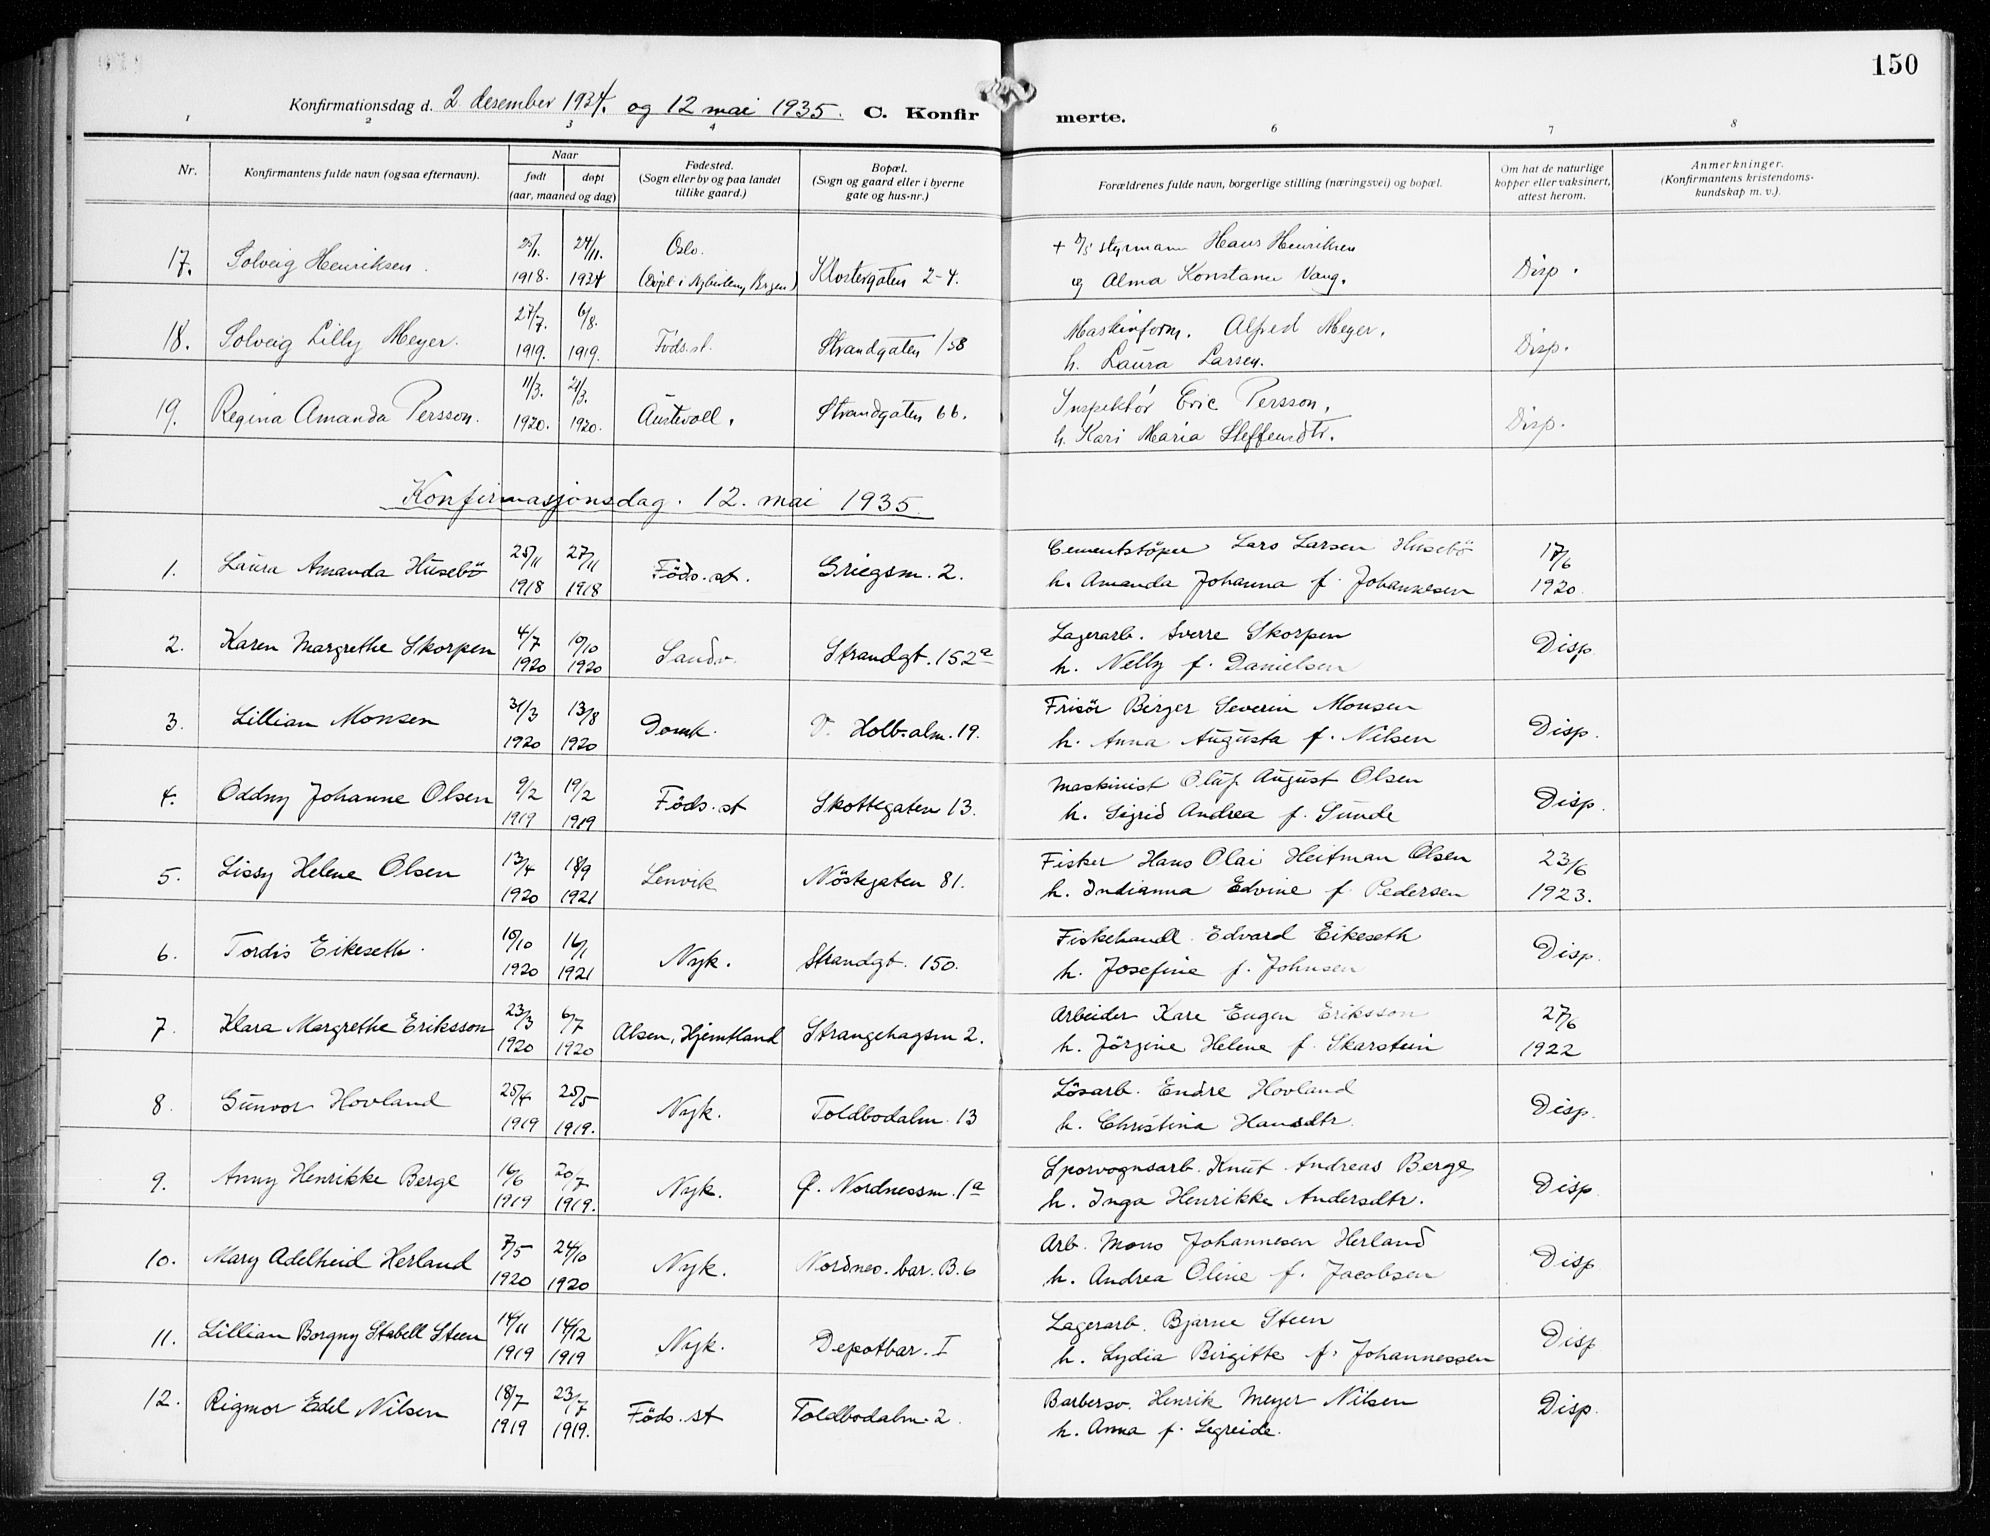 150
Konfirmationsdag d. 2 desember 1934. og 12 mai 1935. C. Konfirmerte.
1 2 3 4 6 7 8
Nr. Konfirmantens fulde navn (ogsaa efternavn). Naar født døpt (aar, maaned og dag) Fødested. (Sogn eller by og paa landet tillike gaard.) Bopæl. (Sogn og gaard eller i byerne gate og hus-nr.) Forældrenes fulde navn, borgerlige stilling (næringsvei) og bopæl. Om hat de naturlige kopper eller vaksinert, attest herom. Anmerkninger. (Konfirmantens kristendomskundskap m. v.).
17. Solveig Henriksen. 25/11. 1918. 24/11. 1934 Oslo. (Döpt i Bergen) Klostergaten 2-4. + styrmann Hans Henriksen
og Alma Konstanse Vang. Disp.
18. Solveig Lilly Meyer. 27/7. 1919. 6/8. 1919. Föds.st. Strandgaten 158 Maskinform. Alfred Meyer.
h. Laura Larsen. Disp.
19. Regina Amanda Persson. 11/3. 1920. 21/3. 1920. Austevoll. Strandgaten 66. Inspektör Eric Persson.
h. Kari Maria Steffensdtr. Disp.
Konfirmasjonsdag. 12. mai 1935
1. Laura Amanda Husebö 25/11 1918 27/11 1918 Föds.st. Griegsm. 2. Cementstöper Lars Larsen Husebö
h. Amanda Johanna f. Johannesen 17/6 1920.
2. Karen Margrethe Skorpen 4/7 1920 10/10 1920 Sandv. Strandgt. 152a Lagerarb. Sverre Skorpen
h. Nelly f. Danielsen Disp.
3. Lillian Monsen 31/3 1920 13/8 1920 Domk. V. Holb.alm. 19. Frisör Birger Severin Monsen
h. Anna Augusta f. Nilsen Disp.
4. Oddny Johanne Olsen 9/2 1919 19/2 1919 Föds.st Skottegaten 13. Maskinist Oluf August Olsen
h. Sigrid Andrea f. Sunde Disp.
5. Lissy Helene Olsen 13/4 1920 18/9 1921 Lenvik Nöstegaten 81. Fisker Hans Olai Heitman Olsen
h. Indianna Edvine f. Pedersen 23/6 1923.
6. Tordis Eikeseth. 10/10 1920 16/1 1921 Nyk. Strandgt. 150. Fiskehandl. Edvard Eikeseth
h. Josefine f. Johnsen Disp.
7. Klara Margrethe Eriksson 23/3 1920 6/7 1920 Alsen, Hjemtland Strangehagsm 2. Arbeider Kare Eugen Eriksson
h. Jörgine Helene f. Skarstein 27/6 1922
8. Gunvor Hovland 25/4 1919 25/5 1919. Nyk. Toldbodalm. 13 Lösarb. Endre Hovland
h. Christina Hansdtr. Disp.
9. Anny Henrikke Berge 16/6 1919 20/7 1919. Nyk. Ø. Nordnessm. 1a Sporvognsarb. Knut Andreas Berge,
h. Inga Henrikke Andersdtr. Disp.
10. Mary Adelheid Herland 7/5 1920 24/10 1920 Nyk. Nordnes. bar. B.6 Arb. Mons Johannesen Herland
h. Andrea Oline f. Jacobsen Disp
11. Lillian Borgny Stabell Steen 14/11 1919 14/12 1919 Nyk. Depotbar. I Lagerarb. Bjarne Steen
h. Lydia Birgitte f. Johannessen Disp
12. Rigmor Edel Nilsen 18/7 1919 23/7 1919. Föds.st Toldbodalm. 2. Barbersv. Henrik Meyer Nilsen
h. Anna f. Segreide. Disp.